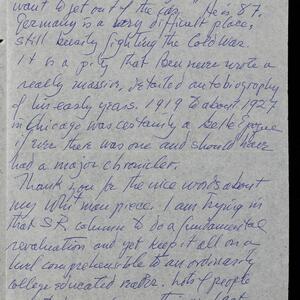 want to get out of the jazz." He is 87.
Germany is a very difficult place,
still keenly fighting the Cold War.
It is a pity that Ben never wrote a
really massive, detailed autobiography
of his early years. 1919 to about 1927
in Chicago was certainly a Belle Époque
if ever there was one and should have
had a major chronicler.
Thank you for the nice words about
my Whitman piece. I am trying in
that S.R. column to do a fundamental
revaluation and yet keep it all on a
level comprehensible to an ordinarily
college educated reader. Lots of people